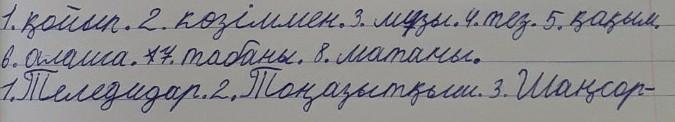 1. қойып. 2. көзіммен. 3. мұзы. 4. тез. 5. қақым.
6. алаша. 7. табаны. 8. матаны.
1. Теледидар. 2. Тоңазытқыш. 3. Шаңсор-